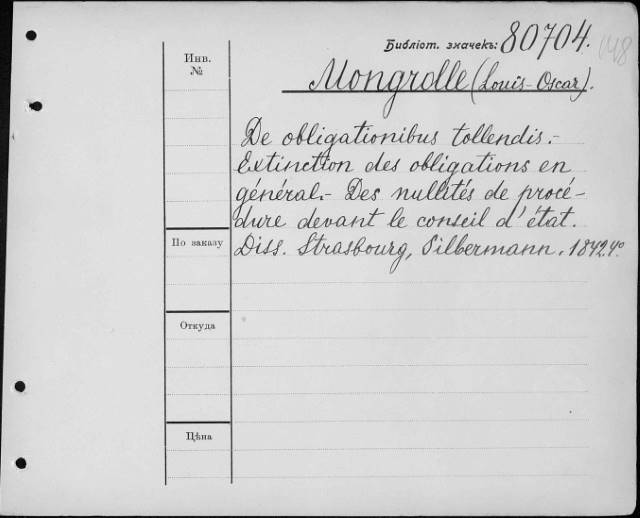 Библіот. значекъ: 80704.
148
Инв.
№
Mongrolle (Louis-Oscar).
De obligationibus tollendis.-
Extinction des obligations en
général.- Des nullités de procé-
dure devant le conseil d'état.
По заказу
Diss. Strasbourg, Silbermann. 1842. 4º
Откуда
Цѣна